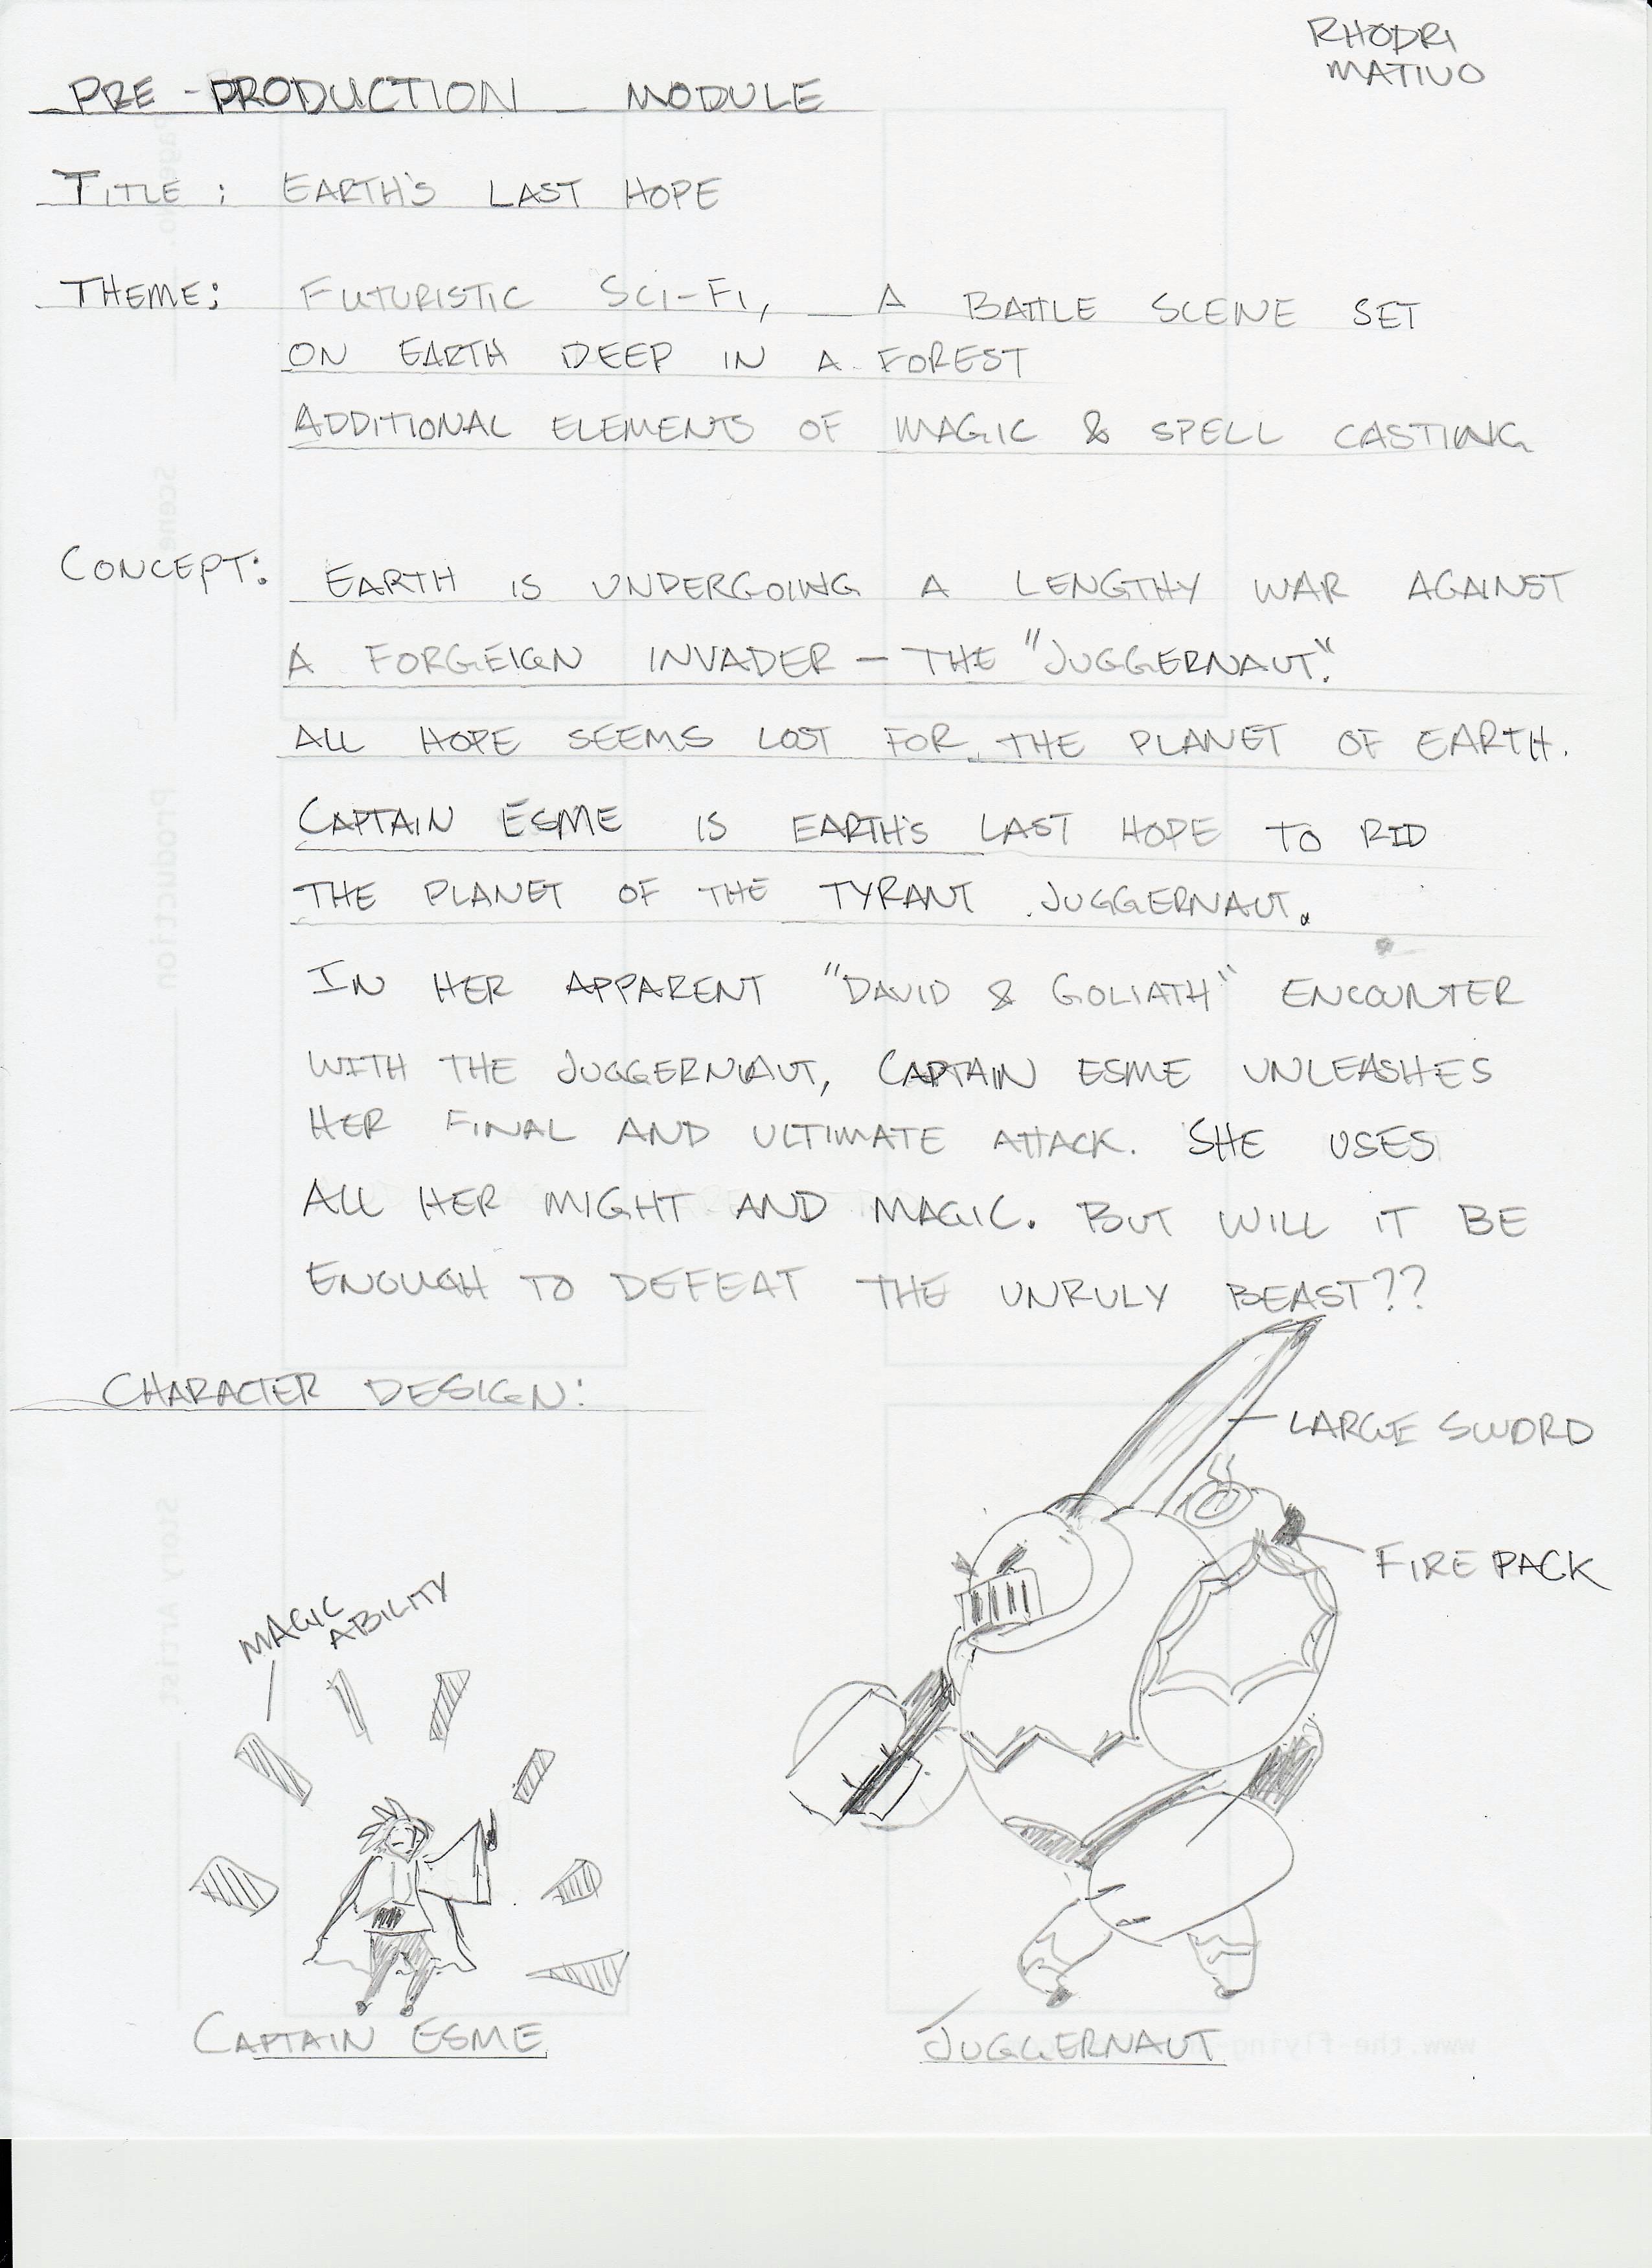 RHODRI
MATIVO
PRE-PRODUCTION MODULE
TITLE: EARTH'S LAST HOPE
THEME: FUTURISTIC SCI-FI, A BATTLE SCENE SET
ON EARTH DEEP IN A FOREST
ADDITIONAL ELEMENTS OF MAGIC & SPELL CASTING
CONCEPT: EARTH IS UNDERGOING A LENGTHY WAR AGAINST
A FORGEIGN INVADER - THE "JUGGERNAUT."
ALL HOPE SEEMS LOST FOR THE PLANET OF EARTH.
CAPTAIN ESME IS EARTH'S LAST HOPE TO RID
THE PLANET OF THE TYRANT JUGGERNAUT.
IN HER APPARENT "DAVID & GOLIATH" ENCOUNTER
WITH THE JUGGERNAUT, CAPTAIN ESME UNLEASHES
HER FINAL AND ULTIMATE ATTACK. SHE USES
ALL HER MIGHT AND MAGIC. BUT WILL IT BE
ENOUGH TO DEFEAT THE UNRULY BEAST??
CHARACTER DESIGN:
LARGE SWORD
FIRE PACK
MAGIC
ABILITY
CAPTAIN ESME
JUGGERNAUT
Scene
Production
Story Artist